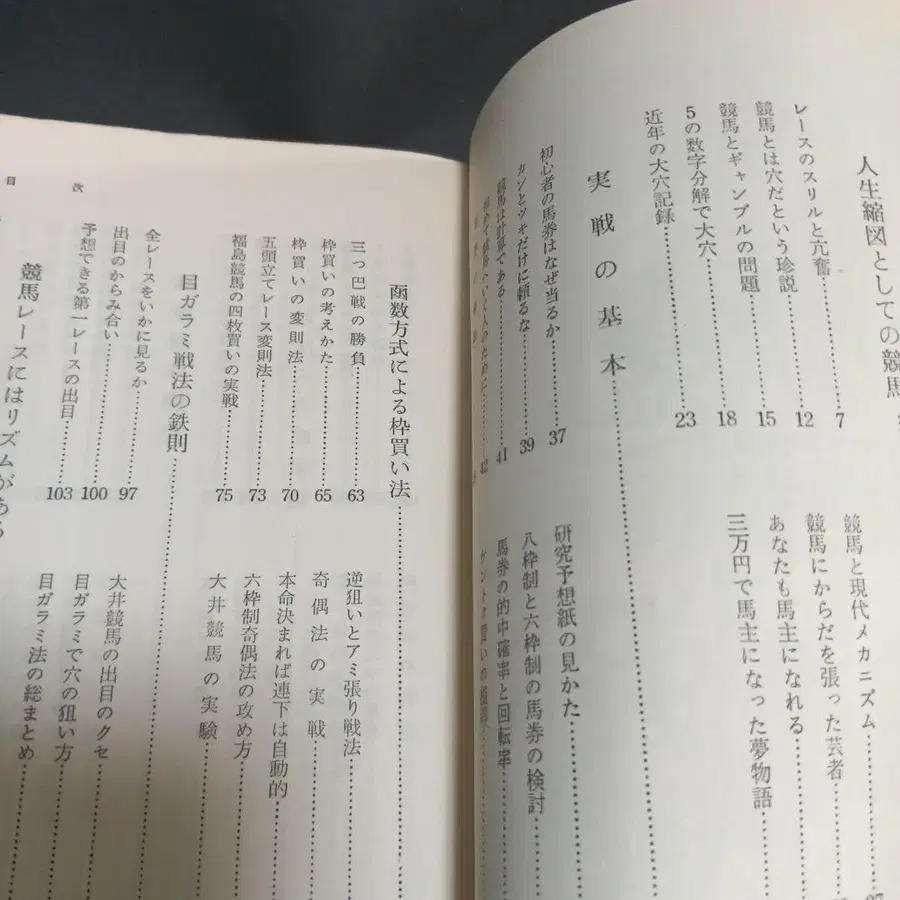 人生縮図としての競馬
レースのスリルと亢奮……7
競馬とは穴だという珍説……12
競馬とギャンブルの問題……15
5の数字分解で大穴……18
近年の大穴記録……23
競馬と現代メカニズム
競馬にからだを張った芸者
あなたも馬主になれる
三万円で馬主になった夢物語
実戦の基本
初心者の馬券はなぜ当るか……37
カンとツキだけに頼るな……39
競馬は計算である……41
42
研究予想紙の見かた
八枠制と六枠制の馬券の検討
馬券の的中確率と回転率
目次
函数方式による枠買い法
三つ巴戦の勝負……63
枠買いの考えかた……65
枠買いの変則法……70
五頭立てレース変則法……73
福島競馬の四枚買いの実戦……75
逆狙いとアミ張り戦法
奇偶法の実戦
本命決まれば連下は自動的
六枠制奇偶法の攻め方
大井競馬の実験
目ガラミ戦法の鉄則
全レースをいかに見るか……97
出目のからみ合い……100
予想できる第一レースの出目……103
大井競馬の出目のクセ
目ガラミで穴の狙い方
目ガラミ法の総まとめ
競馬レースにはリズムがある